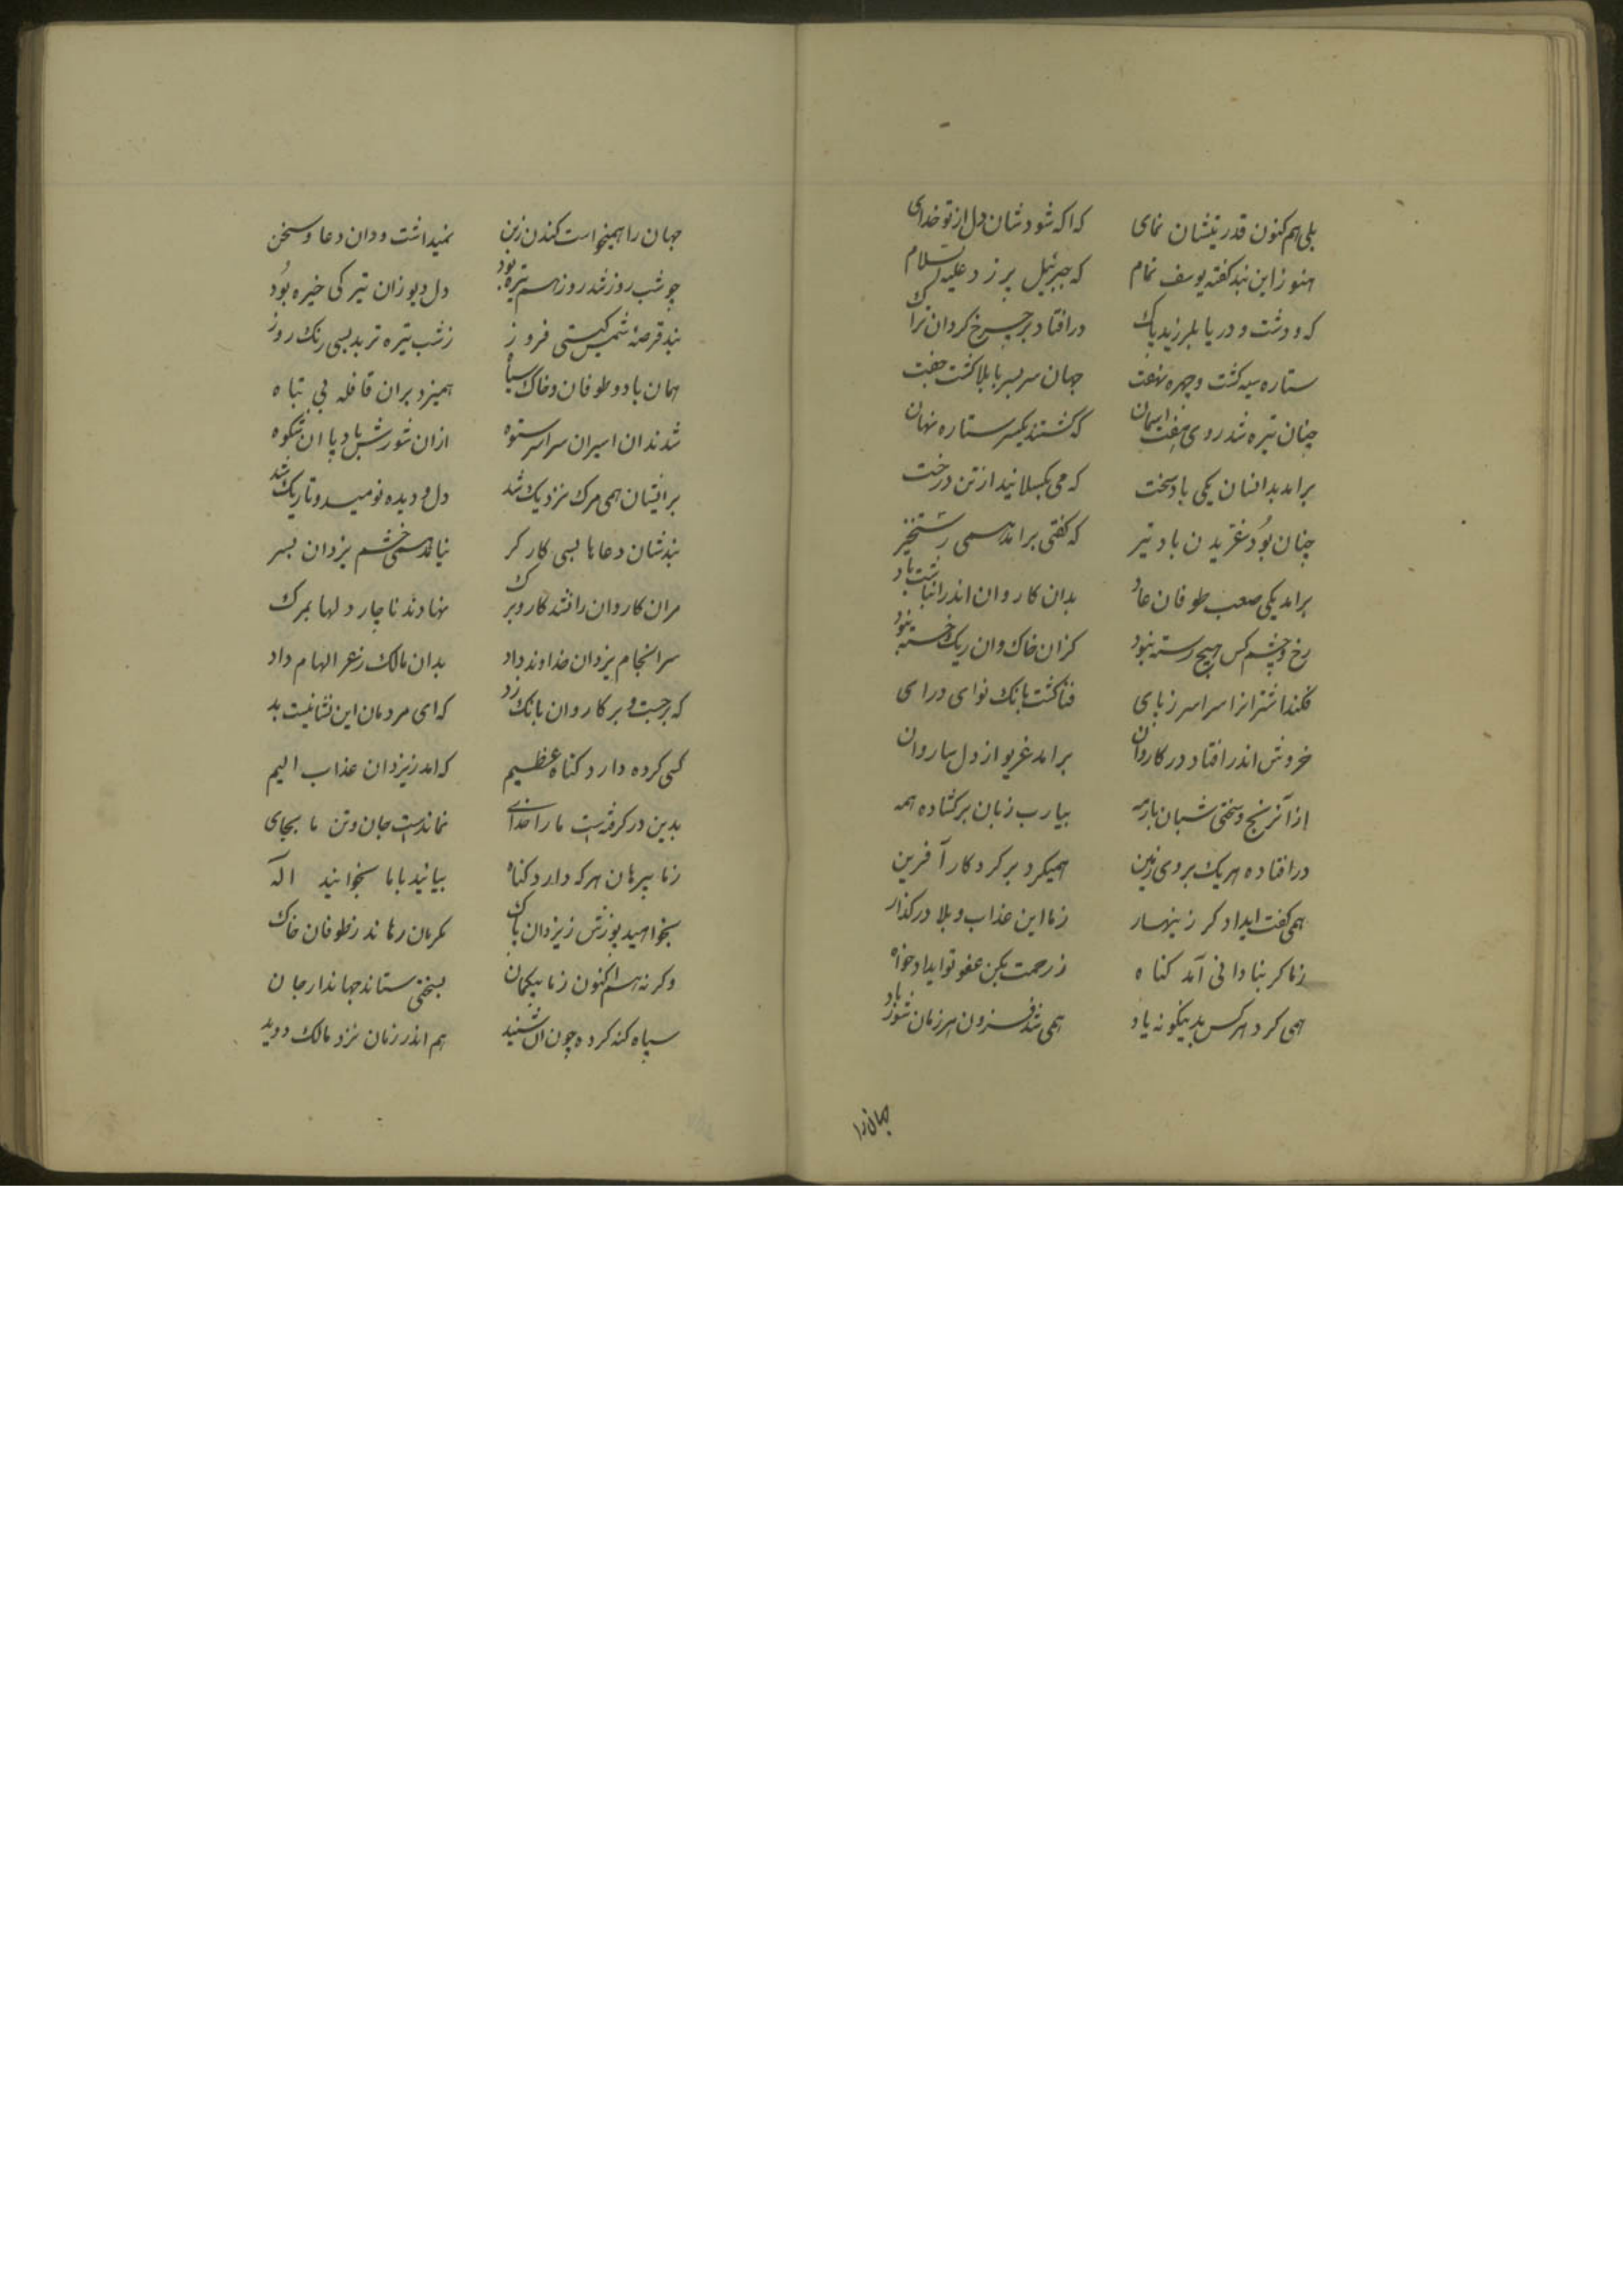 بلی هم کنون قدرتیشان نمای که اکه شود شان دل از تو خدای
هنوز این نبد کفته یوسف تمام که جبرئیل پر زد علیه السلام
که و دشت و دریا بلرزید پاک در افتاد بر چرخ کردان تراک
ستاره سیه کشت و چهره نهفت جهان سربسر با بلا کشت جفت
چنان تیره شد روی هفت اسمان که کشتند یکسر ستاره نهان
برامد بدانسان یکی باد سخت که می بکسلانید از تن درخت
چنان بود غریدن باد تیز که کفتی برامد همی رستخیز
برامد یکی صعب طوفان عاد بدان کاروان اندر انباشت باد
رخ و چشم کس هیچ رسته نبود کزان خاک وان ریک خسته نبود
فکند اشترانرا سراسر ز پای فنا کشت بانک نوای درای
خروش اندر افتاد در کاروان برامد غریو از دل ساروان
از آن رنج و سختی شبان با رمه بیا رب زبان برکشاده همه
در افتاده هریک بروی زمین همیکرد بر کردکار آفرین
همی کفت ایدادکر زینهار زما این عذاب و بلا درکذار
زما کر بنادانی آمد کناه ز رحمت بکن عفو تو ایداد خواه
همی کرد هرکس بدینکونه یاد همی شد فزون هر زمان شور باد
جهان را
جهان را همیخواست کندن ز بن نمیداشت ودان دعا و سخن
چو شب روز شد روز هم تیره بود دل دیو زان تیرکی خیره بود
نبد قرصهٔ شمس کیتی فروز ز شب تیره تر بد بسی رنک روز
همان باد و طوفان و خاک سیاه همیزد بران قافله بی تباه
شدند ان اسیران سراسر ستوه ازان شورش باد با ان شکوه
برایشان همی مرک نزدیک شد دل و دیده نومید و تاریک شد
نبد شان دعاها بسی کارکر نیامد همی خشم یزدان بسر
مران کاروان را نشد کار و برک نهادند ناچار دلها بمرک
سرانجام یزدان خداوند داد بدان مالک زعر الهام داد
که برجست و بر کاروان بانک زد که ای مردمان این نشانیست بد
کسی کرده دارد کناه عظیم که امد ز یزدان عذاب الیم
بدین در کرفتست ما را خدای نماندست جان و تن ما بجای
زنا پیرهان هرکه دارد کناه بیائید با ما بخوانید اله
بخواهید پوزش ز یزدان پاک مکرمان رهاند ز طوفان خاک
وکرنه هم اکنون زما بیکمان بسختی ستاند جهاندار جان
سیاه کنه کرده چون ان شنید هم اندر زمان نزد مالک دوید